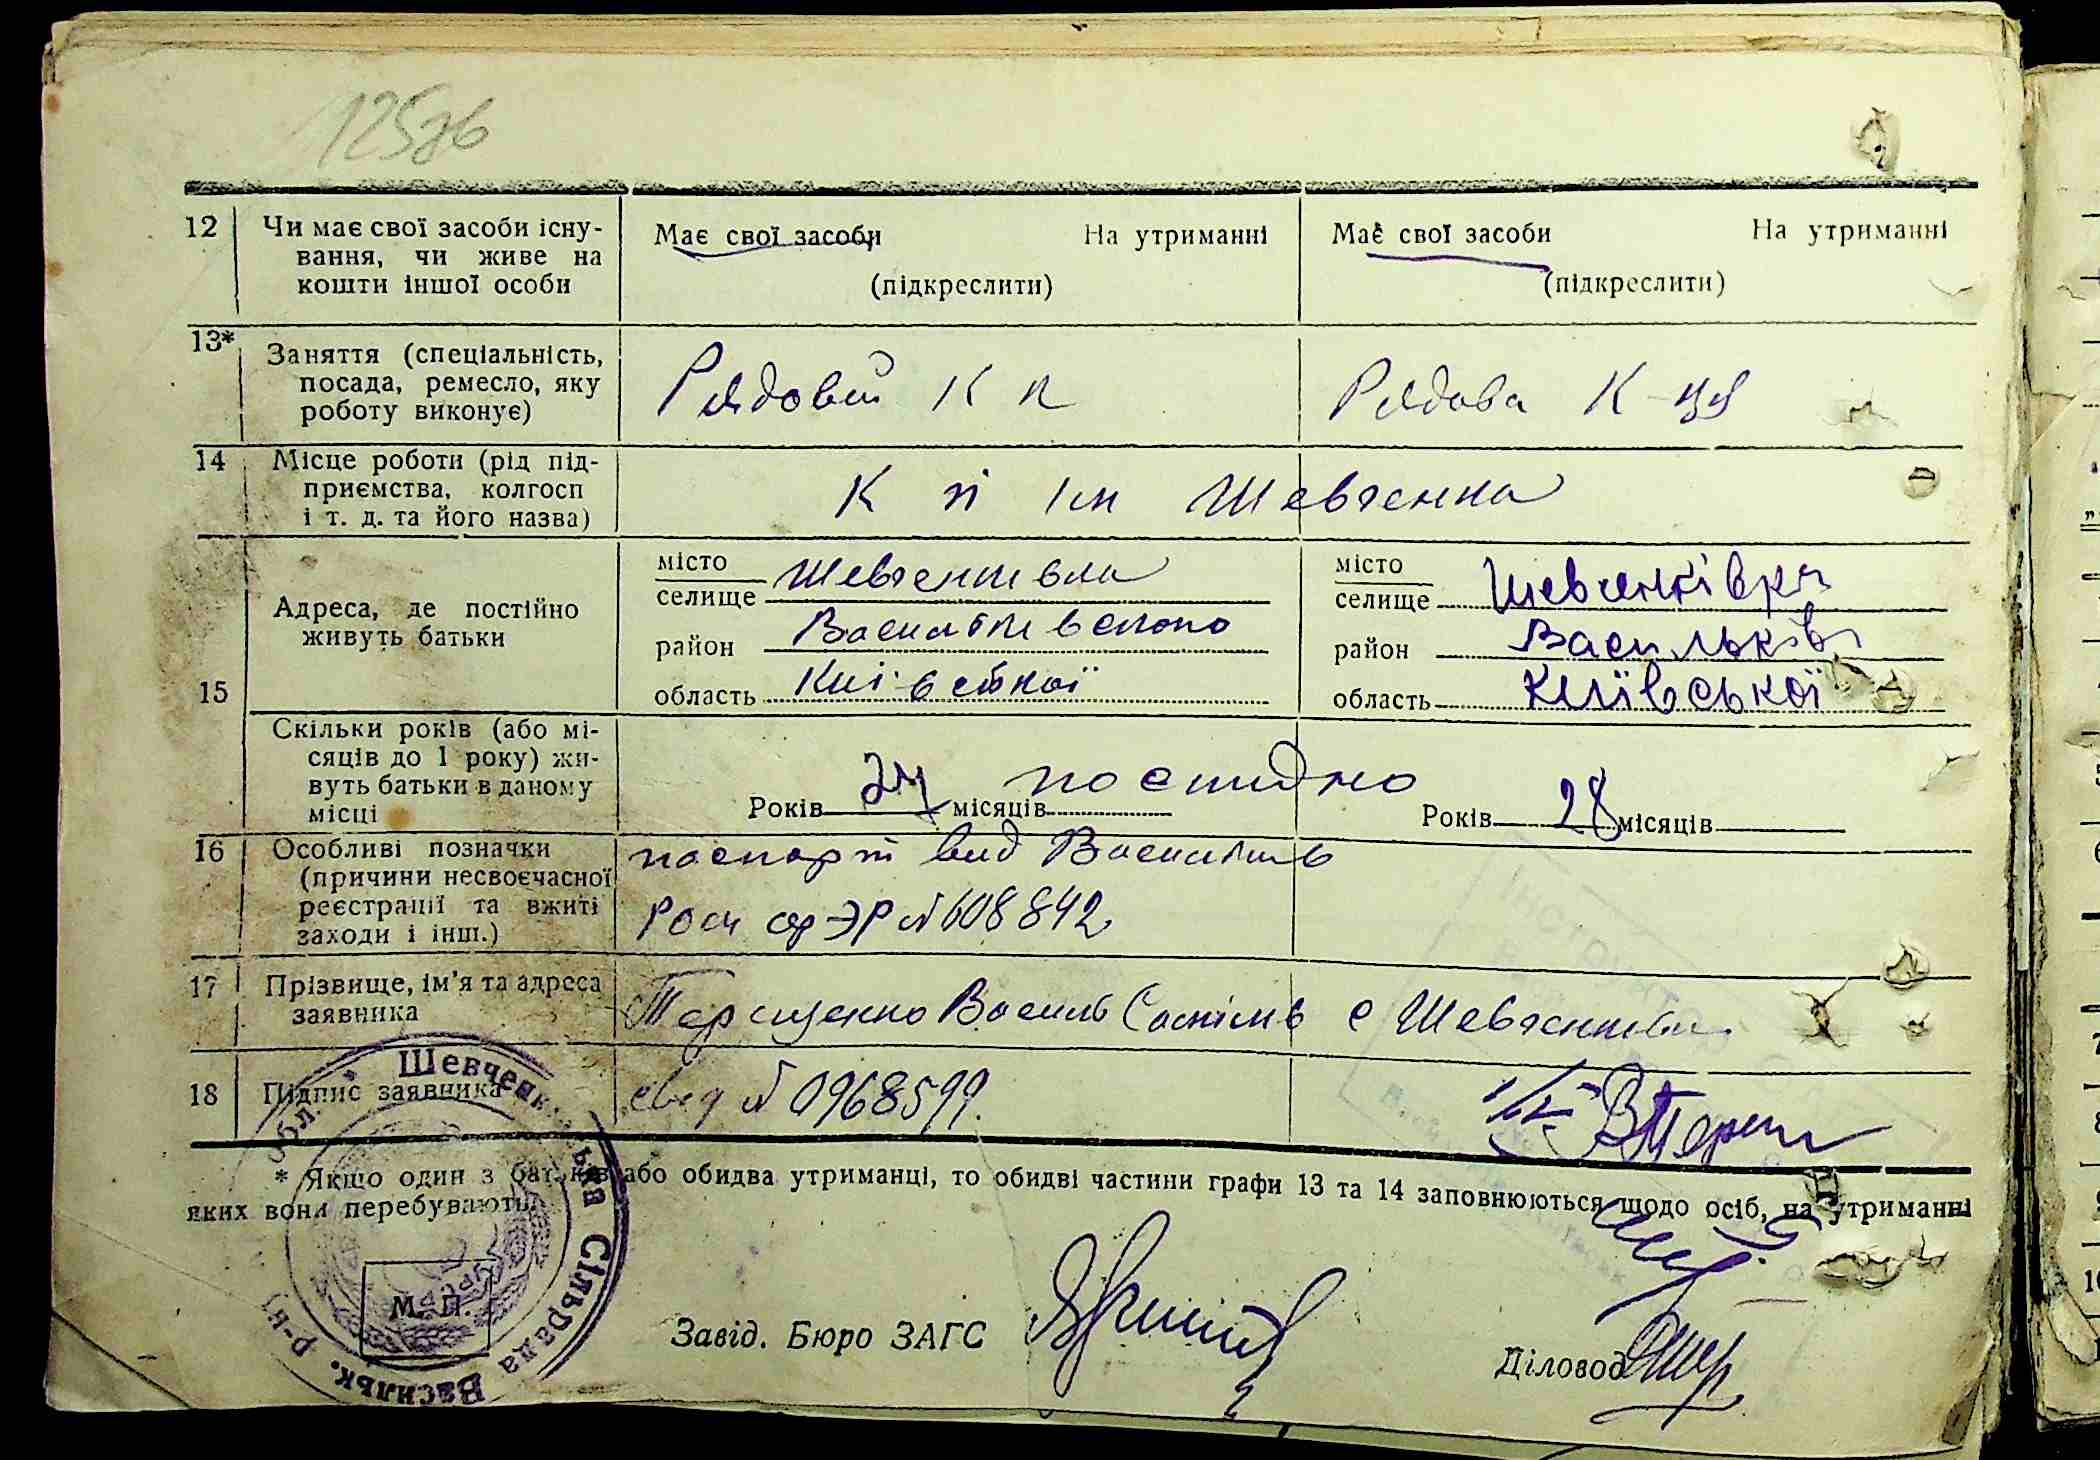 12 Чи має свої засоби існу-
вання, чи живе на
кошти іншої особи
Має свої засоби На утриманні
(підкреслити)
Має свої засоби На утриманні
(підкреслити)
13* Заняття (спеціальність,
посада, ремесло, яку
роботу виконує)
Рядовий К п
Рядова К-ця
14 Місце роботи (рід під-
приємства, колгосп
і т. д. та його назва)
К п ім Шевченка
15 Адреса, де постійно
живуть батьки
місто
селище Шевченківка
район Васильківського
область Київської
місто
селище Шевченківка
район Васильків
область Київської
Скільки років (або мі-
сяців до 1 року) жи-
вуть батьки в даному
місці
Років 24 місяців постійно
Років 28 місяців
16 Особливі позначки
(причини несвоєчасної
реєстрації та вжиті
заходи і інш.)
паспорт вид Васильків
сер ЭР № 608842
17 Прізвище, ім'я та адреса
заявника
Терещенко Василь с Шевченківка
18 Підпис заявника
свид № 0968599
* Якщо один з батьків або обидва утриманці, то обидві частини графи 13 та 14 заповнюються щодо осіб, на утриманні
яких вони перебувають.
М. П.
Шевченківська Сільрада Васильк. р-ну обл.
УРСР
Завід. Бюро ЗАГС
Діловод